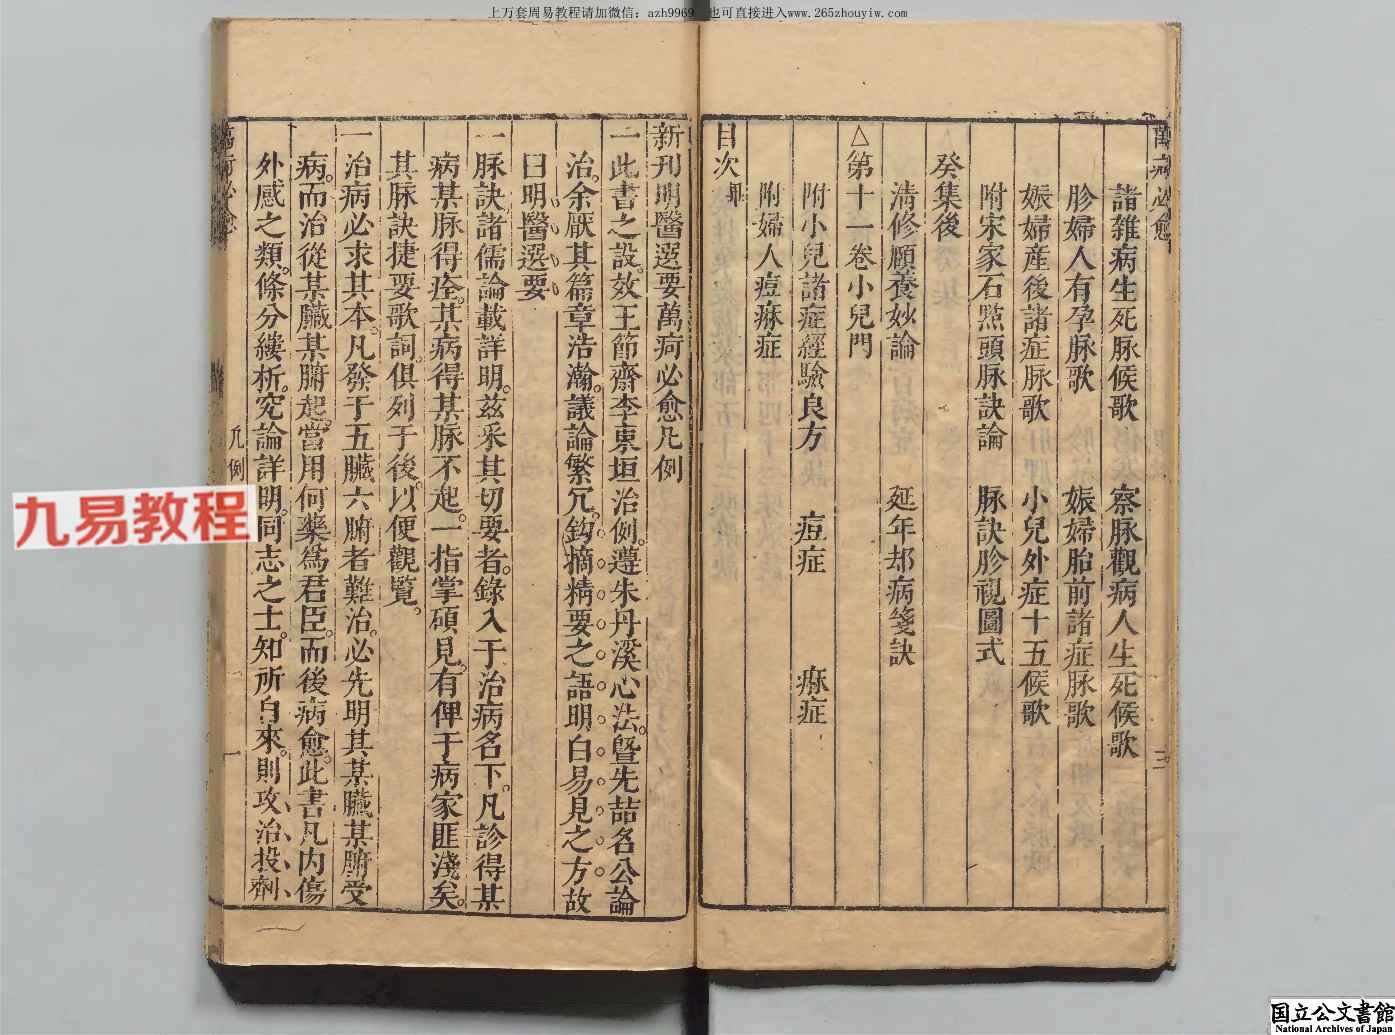 上万套周易教程请加微信：azh9969 也可直接进入www.265zhouyiw.com
萬病必愈
三
諸雜病生死脉候歌 察脉觀病人生死候歌
胗婦人有孕脉歌 娠婦胎前諸症脉歌
娠婦産後諸症脉歌 小兒外症十五候歌
附宋家石㸃頭脉訣論 脉訣胗視圖式
癸集後
清修頤養妙論 延年却病箋訣
△第十一卷小兒門
附小兒諸症經驗良方 痘症 痳症
附婦人痘痳症
目次畢
新刊明醫選要萬病必愈凡例
一此書之設。效王節齋李東垣治例。遵朱丹溪心法。曁先喆名公論
治。余厭其篇章浩瀚。議論繁冗。鈎摘精要之語明白易見之方故
曰明醫選要
一脉訣諸儒論載詳明。兹采其切要者。錄入于治病名下。凡診得某
病某脉得痊。某病得某脉不起。一指掌頋見。有俾于病家匪淺矣。
其脉訣捷要歌詞。俱列于後。以便觀覽。
一治病必求其本。凡發于五臟六腑者難治。必先明其某臟某腑受
病。而治從某臟某腑起。當用何藥爲君臣。而後病愈。此書凡内傷
外感之類。條分縷析。究論詳明。同志之士。知所自來。則攻治投劑
萬病必愈
凡例
一
九易教程
国立公文書館
National Archives of Japan